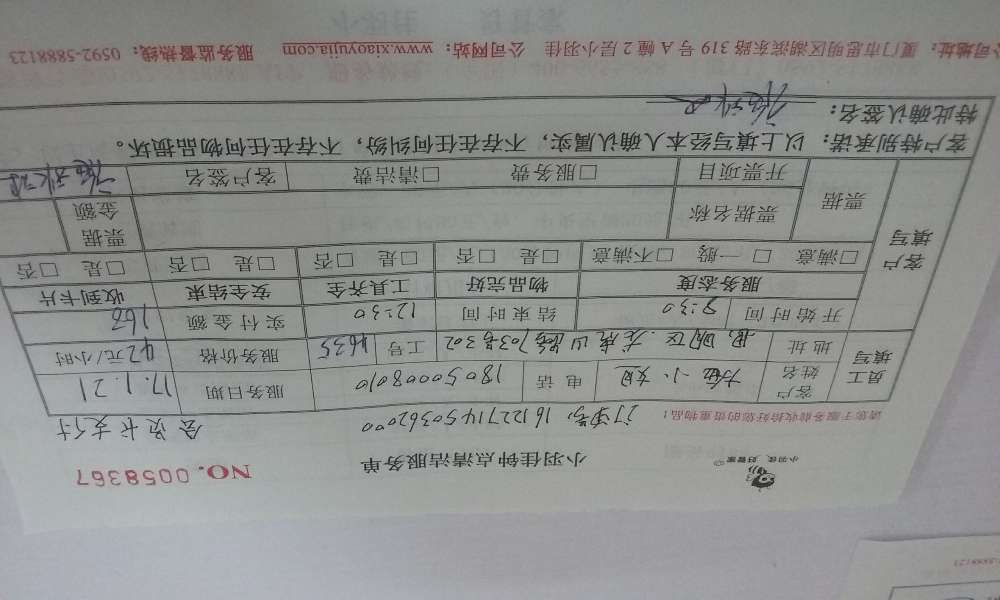 小羽佳，好管家
小羽佳钟点清洁服务单
NO. 0058367
请您于服务前收拾好您的贵重物品！
订单号, 16122714503620000 会员卡支付
员工填写
客户姓名 方小姐 电话 18050008010 服务日期 17.1.21
地址 思明区 703号302 工号 4635 服务价格 42元/小时
开始时间 8:30 结束时间 12:30 实付金额 168
客户填写
服务态度 物品完好 工具齐全 安全结束 收到卡片
□满意 □一般 □不满意 □是 □否 □是 □否 □是 □否 □是 □否
票据 票据名称 票据金额
开票项目 □服务费 □清洁费 客户签名
客户特别承诺：以上填写经本人确认属实，不存在任何纠纷，不存在任何物品损坏。
特此确认签名：
公司地址：厦门市思明区湖滨东路 319 号 A 幢 2 层小羽佳 公司网站：www.xiaoyujia.com 服务监督热线：0592-5888123
5888123